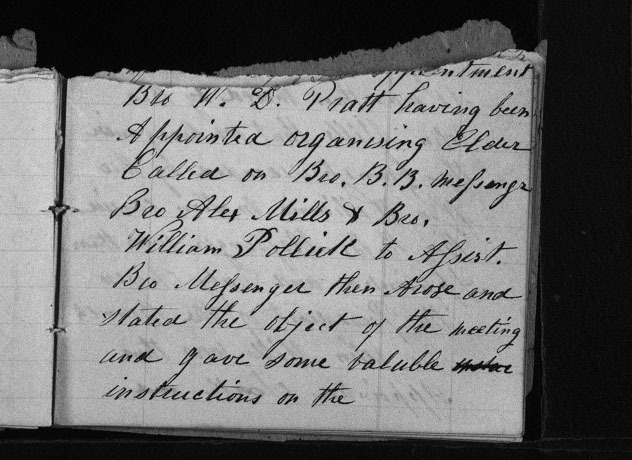 appointment
Bro W. D. Pratt having been
Appointed organising Elder
Called on Bro. B. B. Messenger
Bro Alex Mills & Bro.
William Pollick to Assist.
Bro Messenger then Arose and
stated the object of the meeting
and gave some valuble
instructions on the